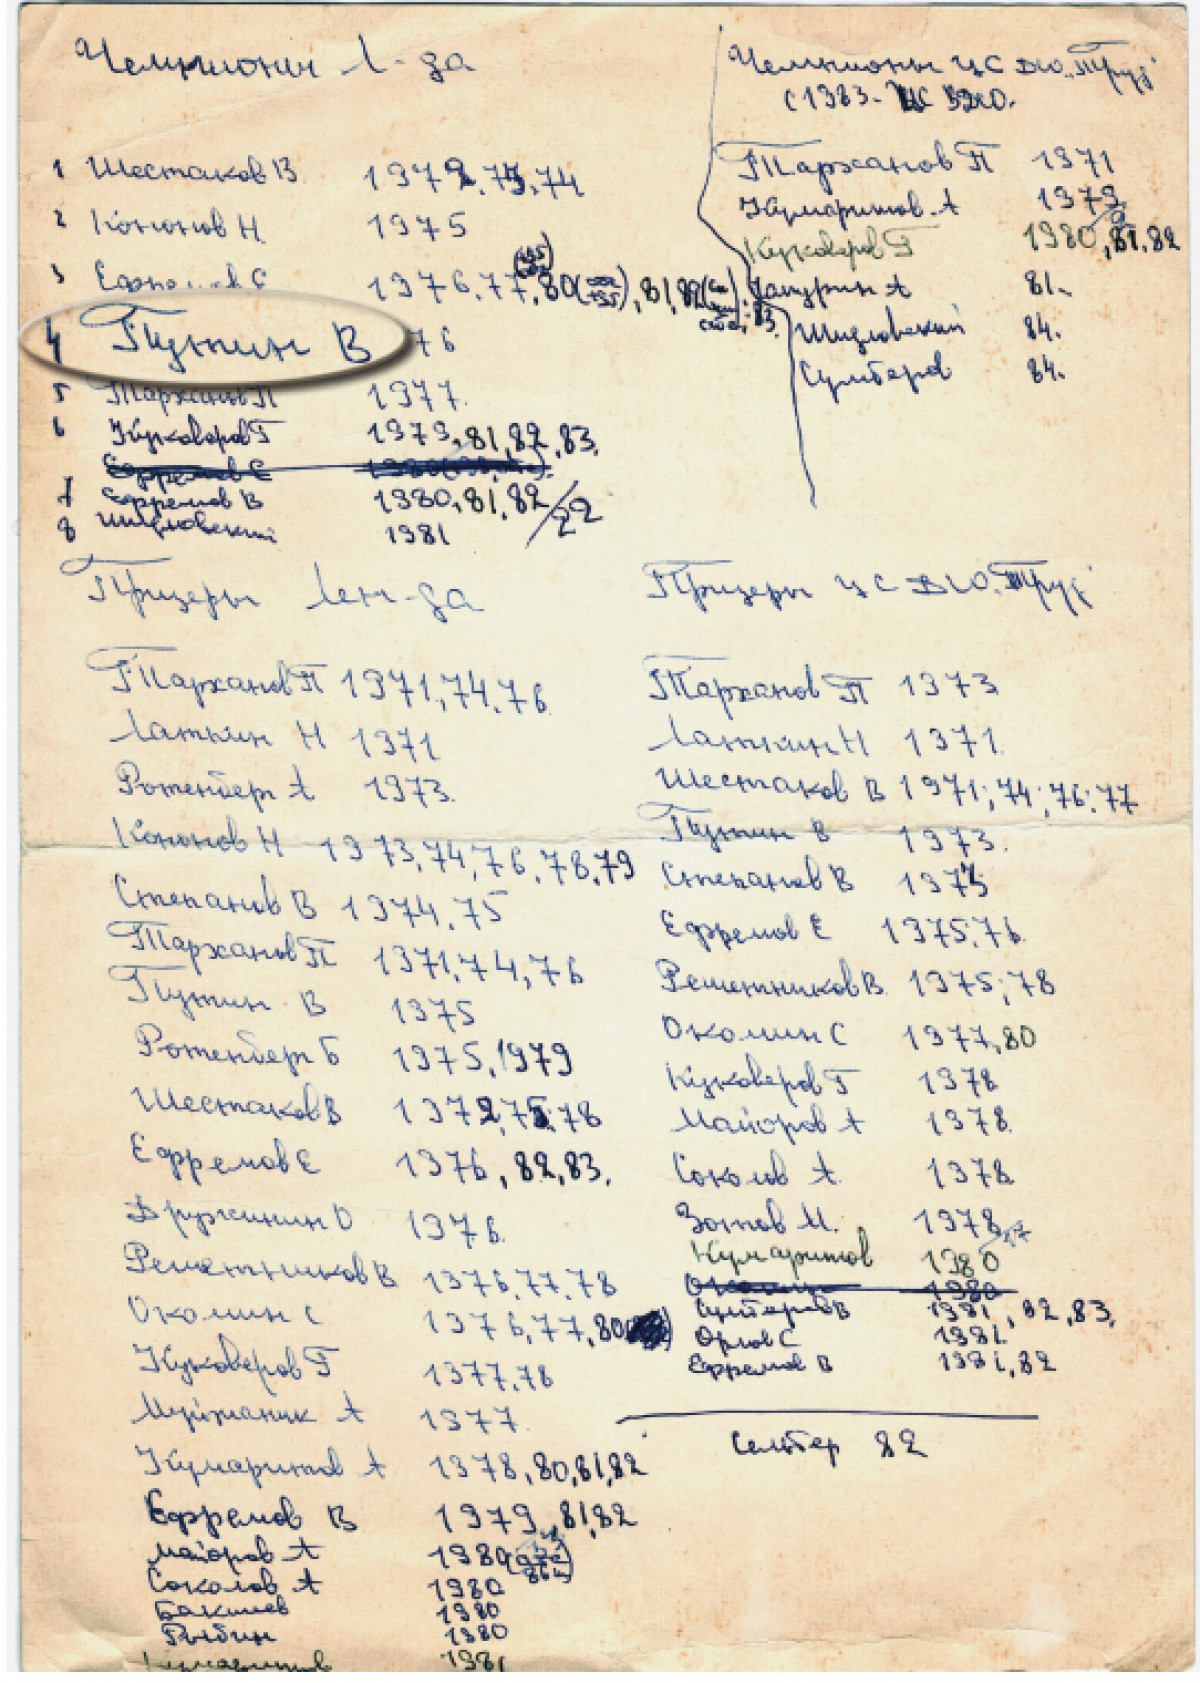 Чемпионы Л-да
1 Шестаков В. 1972, 73, 74
2 Кононов Н. 1975
3 Ефремов Е 1976, 77, 80 81, 82 83
4 Путин В 76
5 Тарханов П 1977.
6 Куковеров Г 1979, 81, 82, 83.
Ефремов Е
7 Ефремов В 1980, 81, 82
8 Шидловский 1981
22
Чемпионы ЦС ДСО „Труд"
с 1983 -
Тарханов П 1971
Кумаритов А 1979
Куковеров Г 1980, 81, 82
А 81.
Шидловский 84.
Сумберов 84.
Призеры Лен-да
Тарханов П 1971, 74, 76
Латкин Н 1971
Ротенберг А 1973.
Кононов Н 1973, 74, 76, 78, 79
Степанов В 1974, 75
Тарханов П 1971, 74, 76
Путин В 1975
Ротенберг Б 1975, 1979
Шестаков В 1972, 75, 78
Ефремов Е 1976, 82, 83.
Дружинин О 1976.
Решетников В 1976, 77, 78
Окомин С 1976, 77, 80
Куковеров Г 1977, 78
А 1977
Кумаритов А 1978, 80, 81, 82
Ефремов В 1979, 81, 82
Майоров А 1980
Соколов А 1980
Бакшеев 1980
Рыбин 1980
Кумаритов 1981
Призеры ЦС ДСО „Труд"
Тарханов П 1973
Латкин Н 1971.
Шестаков В 1971; 74; 76; 77
Путин В 1973.
Степанов В
Ефремов Е 1975, 76.
Решетников В. 1975; 78
Окомин С 1977, 80
Куковеров Г 1978
Майоров А 1978.
Соколов А 1978.
Зотов М. 1978
Кумаритов 1980
Окомин 1980
В 1981, 82, 83.
Орлов С 1981.
Ефремов В 1981, 82
82